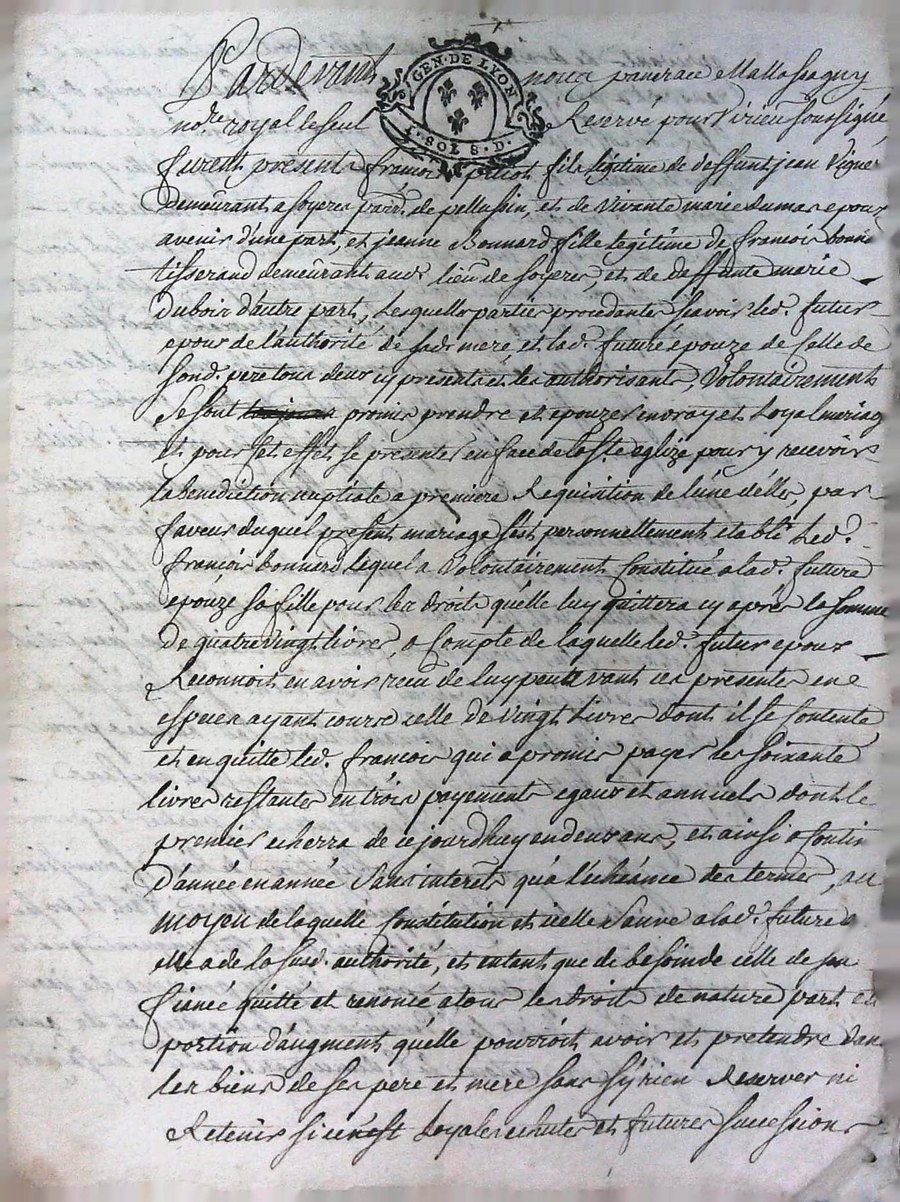 Pardevant nous pancrace Mallassagny
GEN · DE LYON
I · SOL S · D ·
no.re royal le seul Reservé pour Virieu soussigné,
furent presents françois fils legitime de deffunt jean Vigne
demeurant a soyeres par.d de pellussin, et de vivante marie dumas epoux
avenir d'une part, et jeanne Bonnard fille legitime de françois bonna
tisserand demeurant aud. lieu de soyeres, et de deffunte marie
dubois d'autre part, Lesquelles parties procedantes sçavoir led. futur
epoux de l'authorité de sad. mere, et lad. future épouze de Celle de
sond. pere tous deux icy presents et les authorisants, Volontairement
se sont promis prendre et epouzer en vray et Loyal mariag
et pour set effet se presenter en face de la ste eglize pour y recevoir
la benediction nuptiale a premiere Requisition de l'une d'elles, par
faveur duquel present mariage s'est personnellement etably Led.
françois bonnard lequel a Volontairement Constitué a lad. future
epouze sa fille pour les droits qu'elle luy quittera cy aprés la somme
de quatre vingt livres, a Compte de laquelle led. futur epoux
Reconnoit en avoir reçu de luy peu avant ces presentes en
especes ayant cours celle de vingt Livres dont il se Contente
et en quitte led. françois qui a promis payer les soixante
livres restantes en trois payements egaux et annuels dont le
premier echerra de ce jourdhuy en deux ans, et ainsi a Contin
d'année en année sans interets qu'a l'echéance des termes, au
moyen de laquelle Constitution et icelle sauve a lad. future
elle a de la sud. authorité, et entant que de besoin de celle de son
fiancé quitté et renoncé a tous les droits de nature part et
portion d'augment qu'elle pourroit avoir et pretendre dan
les biens de ses pere et mere sans s'y rien Reserver ni
Retenir si ce n'est Loyales echutes et futures successions